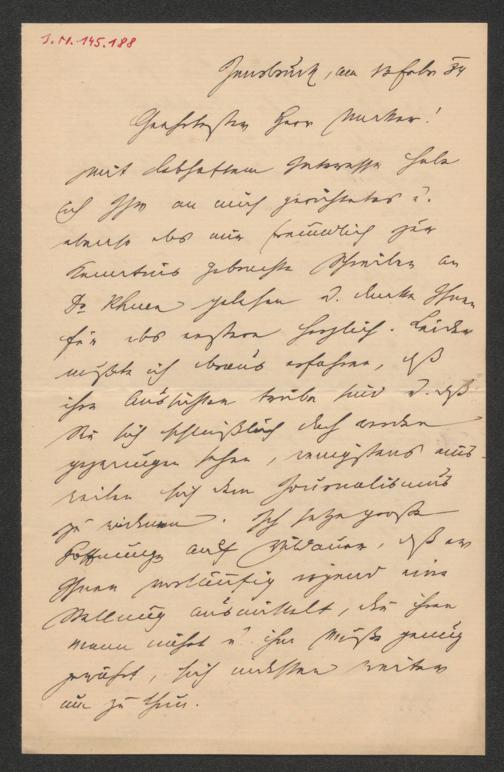 J.N. 145.188
Innsbruck, am 13 Febr 84
Geehrtester Herr
mit lebhaftem Interesse habe
ich Ihr an mich gerichtetes u.
ebenso das mir freundlich zur
Kenntnis gebrachte Schreiben an
Dr Khuen gelesen u. danke Ihnen
für das erstere herzlich. Leider
mußte ich daraus erfahren, daß
ihre Aussichten trübe sind u. daß
Sie sich schließlich doch werden
gezwungen sehen, wenigstens einst-
weilen sich dem Journalismus
zu widmen. Ich setze große
Hoffnung auf Wildauer, daß er
Ihnen vorläufig irgend eine
Stellung ausmittelt, die ihren
Mann nährt u. ihm Muße genug
gewährt, sich indessen weiter
um zu thun.